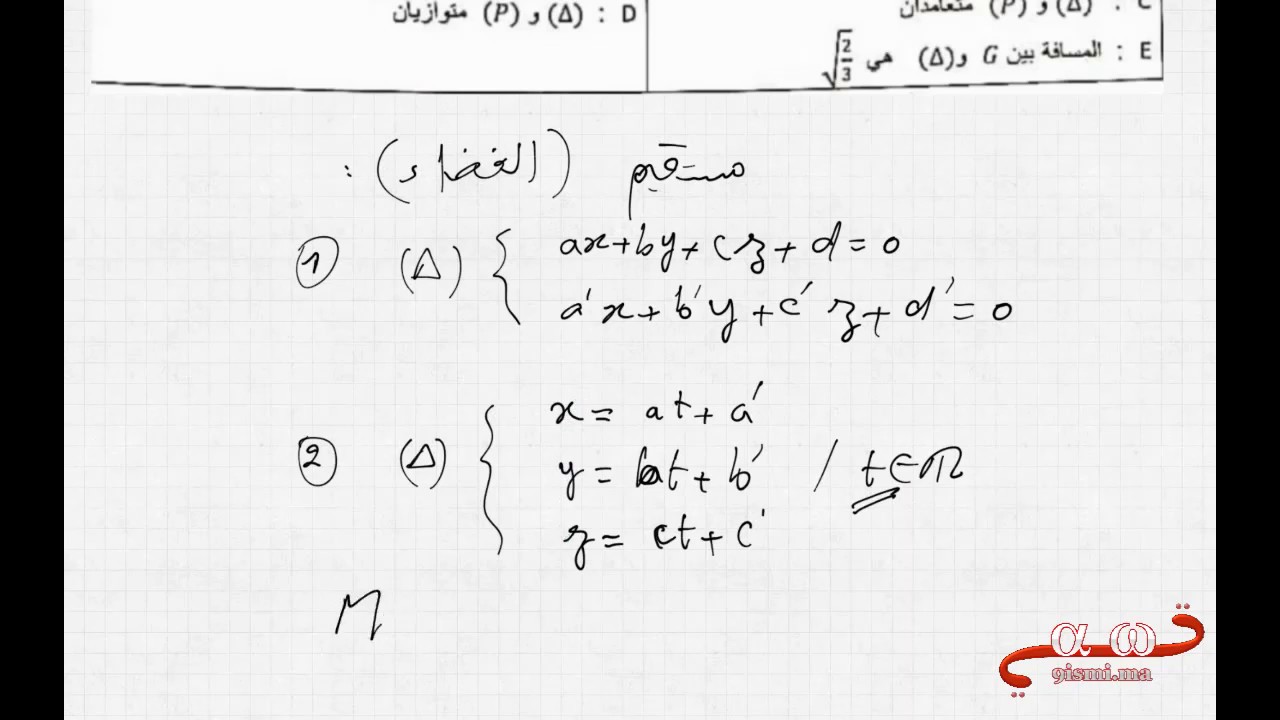 C : (Δ) و (P) متعامدان
D : (Δ) و (P) متوازيان
E : المسافة بين G و(Δ) هي √(2/3)
مستقيم (الفضاء) :
① (Δ) { ax+by+cz+d=0
a'x+b'y+c'z+d'=0
② (Δ) { x= at+a'
y= bt+b' / t∈ℝ
z= ct+c'
M
α ω
9ismi.ma